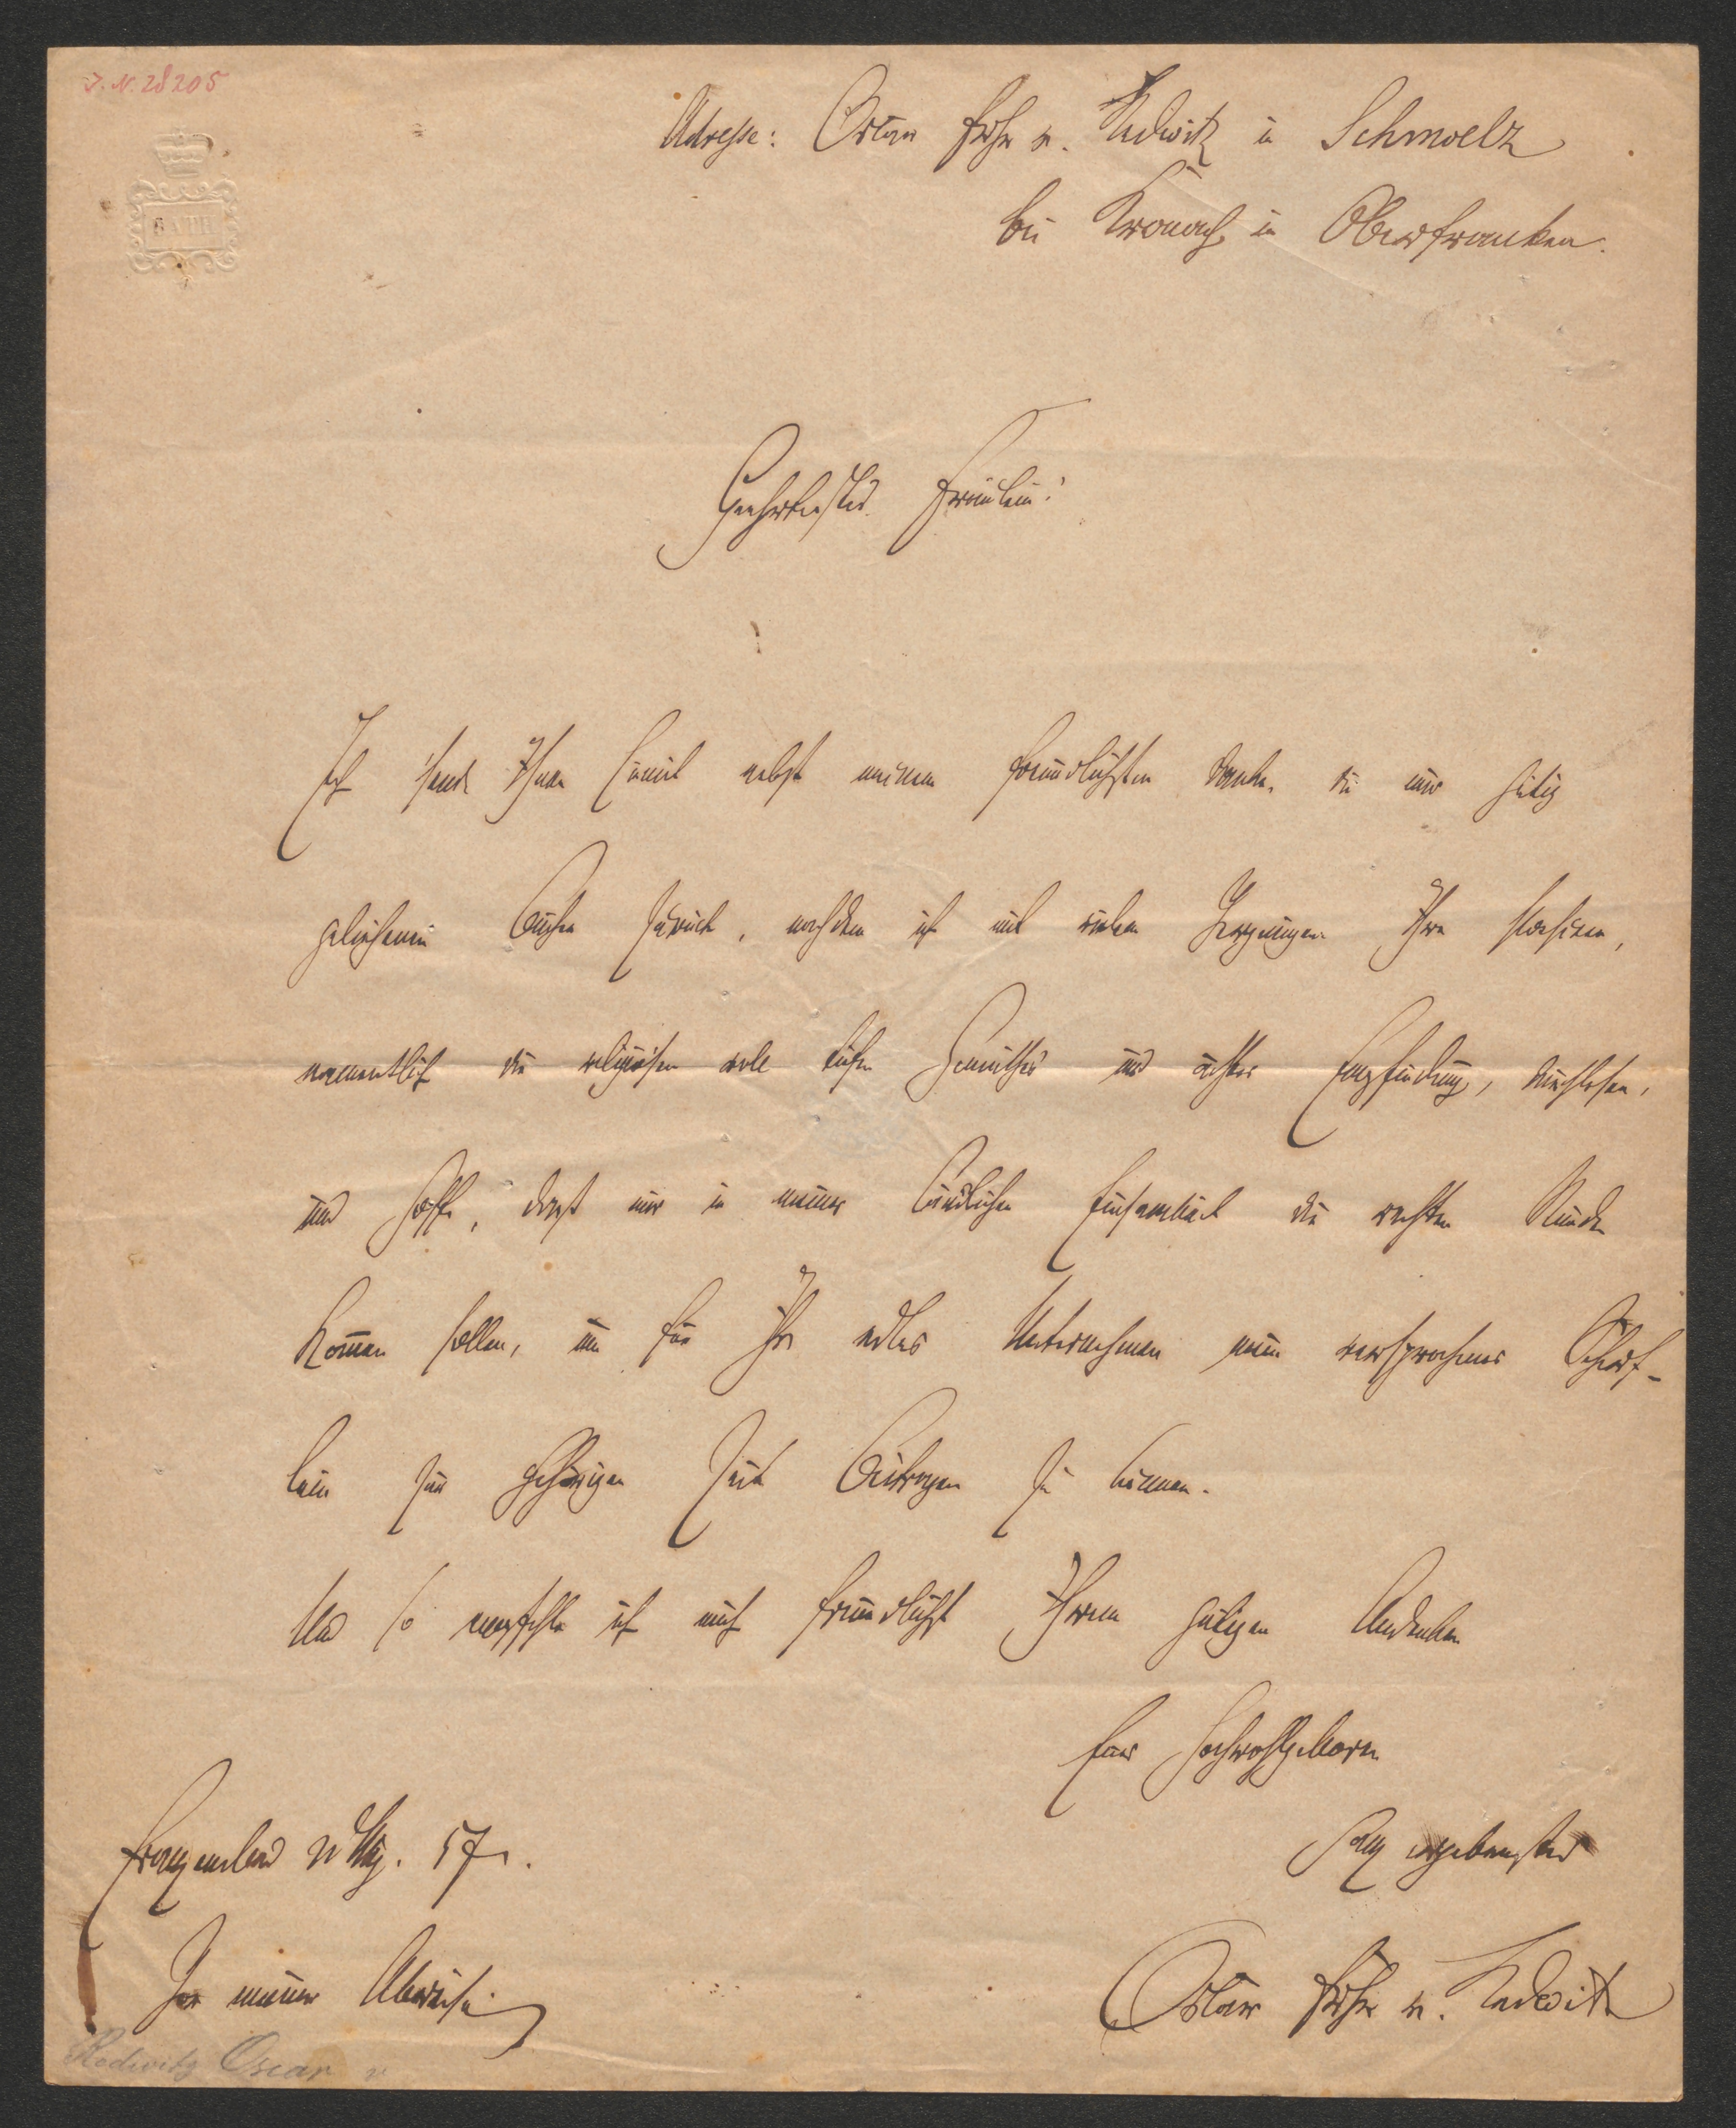 J. N. 28205
BATH
Adresse: Oscar Frhr v. Redwitz in Schmoelz
bei Kronach in Oberfranken.
Geehrtestes Fräulein!
Ich sende Ihnen hiemit nebst meinem freundlichsten Danke, die mir gütig
geliehenen Bücher zurück, nachdem ich mit vielem Vergnügen Ihre Poesieen,
namentlich die religiösen voll tiefen Gemüthes und ächter Empfindung, durchlesen,
und hoffe, daß mir in meiner ländlichen Einsamkeit die rechten Stunden
kommen sollen, um für Ihr edles Unternehmen mein versprochenes Scherf-
lein zur gehörigen Zeit beitragen zu können.
Und so empfehle ich mich freundlichst Ihrem gütigen Andenken
Euer Hochwohlgeboren
ganz ergebenster
Franzensbad 57.
Vor meiner Abreise.
Oscar Frhr v. Redwitz
Redwitz Oscar v